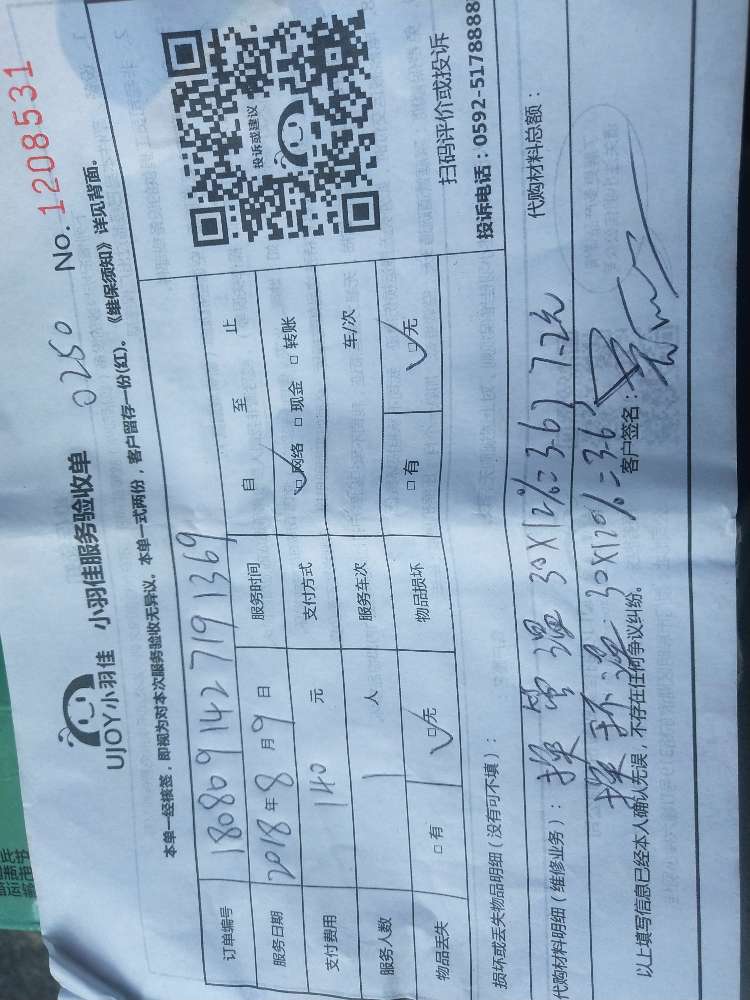 UJOY小羽佳 小羽佳服务验收单 0250 No. 1208531
本单一经核签，即视为对本次服务验收无异议。本单一式两份，客户留存一份(红)。《维保须知》详见背面。
订单编号 180809142719 1369
服务日期 2018年8月9日 服务时间 自 至 止
支付费用 140 元 支付方式 ☑网络 □现金 □转账
服务人数 1 人 服务车次 车/次
物品丢失 □有 ☑无 物品损坏 □有 ☑无
投诉或建议
扫码评价或投诉
投诉电话：0592-5178888
损坏或丢失物品明细（没有可不填）：
代购材料明细（维修业务）： 代购材料总额：
30X12%=3.6 7.2元
30X12%=3.6
以上填写信息已经本人确认无误，不存在任何争议纠纷。 客户签名：